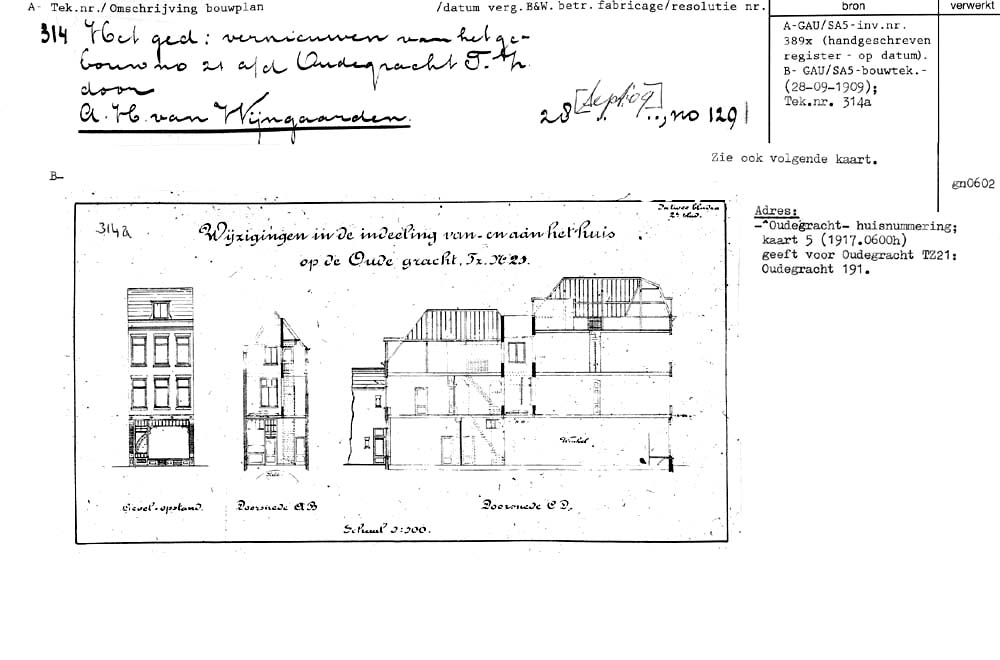 A- Tek.nr./Omschrijving bouwplan /datum verg.B&W.betr.fabricage/resolutie nr. bron verwerkt
314 Het ged: vernieuwen van het ge-
bouw no 21 a/d Oudegracht T. Z.
door
A. H. van Wijngaarden.
28 [Sept/09] . . . , no 1291
A-GAU/SA5-inv.nr.
389x (handgeschreven
register - op datum).
B- GAU/SA5-bouwtek.-
(28-09-1909);
Tek.nr. 314a
Zie ook volgende kaart.
B-
gn0602
314a
In twee bladen
2e blad.
Wijzigingen in de indeeling van- en aan het huis
op de Oude gracht, Tz. No 21.
Winkel
Gevel-opstand.
Doorsnede A B
Doorsnede C D,
Schaal 1:100.
Adres:
-^Oudegracht- huisnummering;
kaart 5 (1917.0600h)
geeft voor Oudegracht TZ21:
Oudegracht 191.